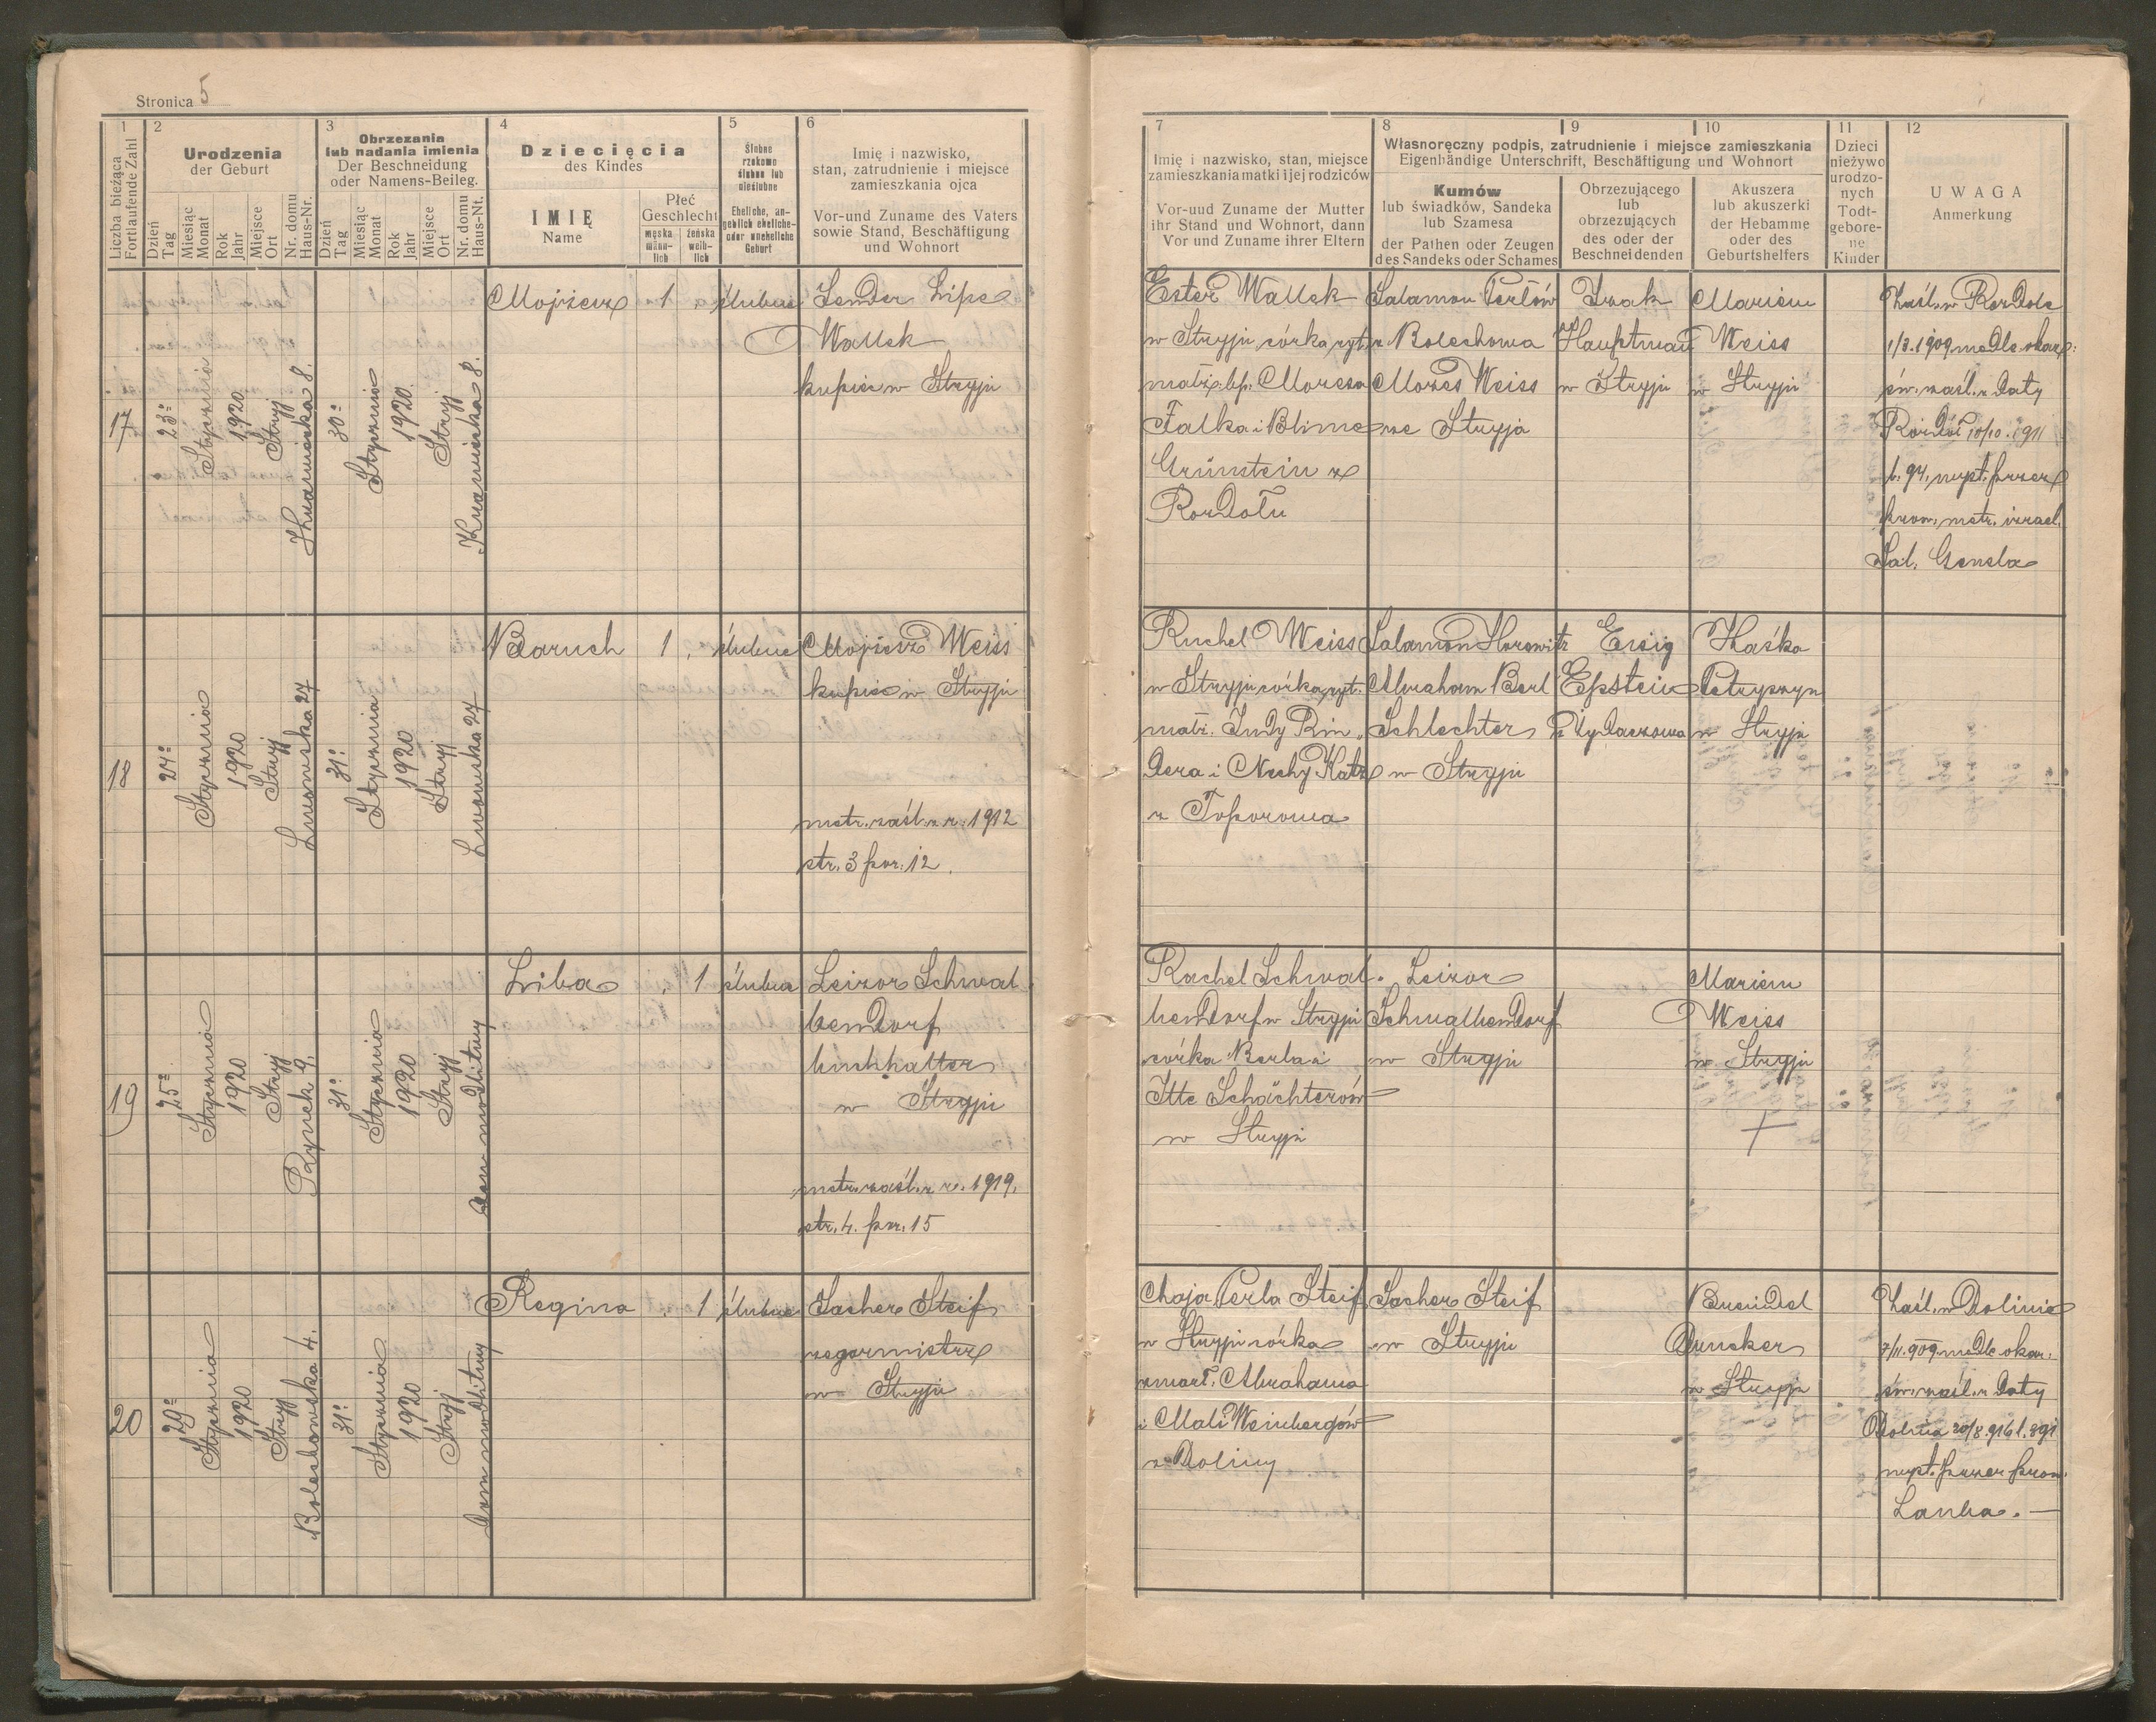 Stronica 5
1
Liczba bieżąca
Fortlaufende Zahl
2
Urodzenia
der Geburt
Dzień
Tag
Miesiąc
Monat
Rok
Jahr
Miejsce
Ort
Nr. domu
Haus-Nr.
3
Obrzezania
lub nadania imienia
Der Beschneidung
oder Namens-Beileg.
Dzień
Tag
Miesiąc
Monat
Rok
Jahr
Miejsce
Ort
Nr. domu
Haus-Nt.
4
Dziecięcia
des Kindes
IMIĘ
Name
Płeć
Geschlecht
męska
männ-
lich
żeńska
weib-
lich
5
Ślubne
rzekomo
ślubne lub
nieślubne
Eheliche, an-
geblich eheliche-
oder uneheliche
Geburt
6
Imię i nazwisko,
stan, zatrudnienie i miejsce
zamieszkania ojca
Vor-und Zuname des Vaters
sowie Stand, Beschäftigung
und Wohnort
7
Imię i nazwisko, stan, miejsce
zamieszkania matki i jej rodziców
Vor-uud Zuname der Mutter
ihr Stand und Wohnort, dann
Vor und Zuname ihrer Eltern
8
9
10
Własnoręczny podpis, zatrudnienie i miejsce zamieszkania
Eigenhändige Unterschrift, Beschäftigung und Wohnort
Kumów
lub świadków, Sandeka
lub Szamesa
der Pathen oder Zeugen
des Sandeks oder Schames
Obrzezującego
lub
obrzezujących
des oder der
Beschneidenden
Akuszera
lub akuszerki
der Hebamme
oder des
Geburtshelfers
11
Dzieci
nieżywo
urodzo-
nych
Todt-
gebore-
ne
Kinder
12
UWAGA
Anmerkung
17
23o
Stycznia
1920
Stryj
Kuśnierska 8.
30o
Stycznia
1920
Stryj
Kuśnierska 8.
Mojżesz
1
.
ślubne
Sender Lipe
Wallek
kupiec w Stryju
Ester Wallek
w Stryju córka ryt.
małż. bp. Mozesa
Falka i Blime
Grünstein z
Rozdołu
Salamon Perłów
z Bolechowa
Mozes Weiss
ze Stryja
Izak
Hauptman
w Stryju
Mariem
Weiss
w Stryju
Zaśl. w Rozdole
1/3. 1909 wedle okaz.
św. zaśl. z daty
Rozdół 10/10. 1911
l. 94. wyst. przez
prow. metr. izrael.
Sal. Gensla
18
24o
Stycznia
1920
Stryj
Lwowska 27
31o
Stycznia
1920
Stryj
Lwowska 27
Baruch
1
.
ślubne
Mojżesz Weiss
kupiec w Stryju
metr. zaśl. z r. 1912
str. 3 poz. 12.
Ruchel Weiss
w Stryju córka ryt.
małż. Judy Rin„
dera i Nechy Katz
z Toporowa
Salamon Horowitz
Abraham Berl
Schlechter
w Stryju
Eisig
Epstein
z Żydaczowa
Haśka
Petryszyn
w Stryju
19
25o
Stycznia
1920
Stryj
Rynek 9.
31o
Stycznia
1920
Stryj
dom modlitwy
Liba
.
1
ślubne
Leizor Schwal
bendorf
buchhalter
w Stryju
metr. zaśl. z r. 1919.
str. 4. poz. 15
Rachel Schwal
bendorf w Stryju
córka Berla i
Itte Schächterów
w Stryju
Leizor
Schwalbendorf
w Stryju
Mariem
Weiss
w Stryju
20
29o
Stycznia
1920
Stryj
Bolechowska 4.
31o
Stycznia
1920
Stryj
Dom modlitwy
Regina
.
1
ślubne
Sacher Steif
zegarmistrz
w Stryju
Chaja Perla Steif
w Stryju córka
zmarł. Abrahama
i Mali Weinbergów
z Doliny
Sacher Steif
w Stryju
Breindel
Duncker
w Stryju
Zaśl. w Dolinie
7/11. 909. wedle okaz.
św. zaśl. z daty
Dolina 20/8. 916 l. 891
wyst. przez prow.
Lauba. —